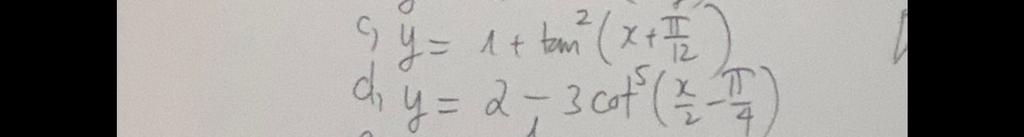 c, y = 1 + tan²(x + π/12)
d, y = 2 - 3 cot⁵(x/2 - π/4)